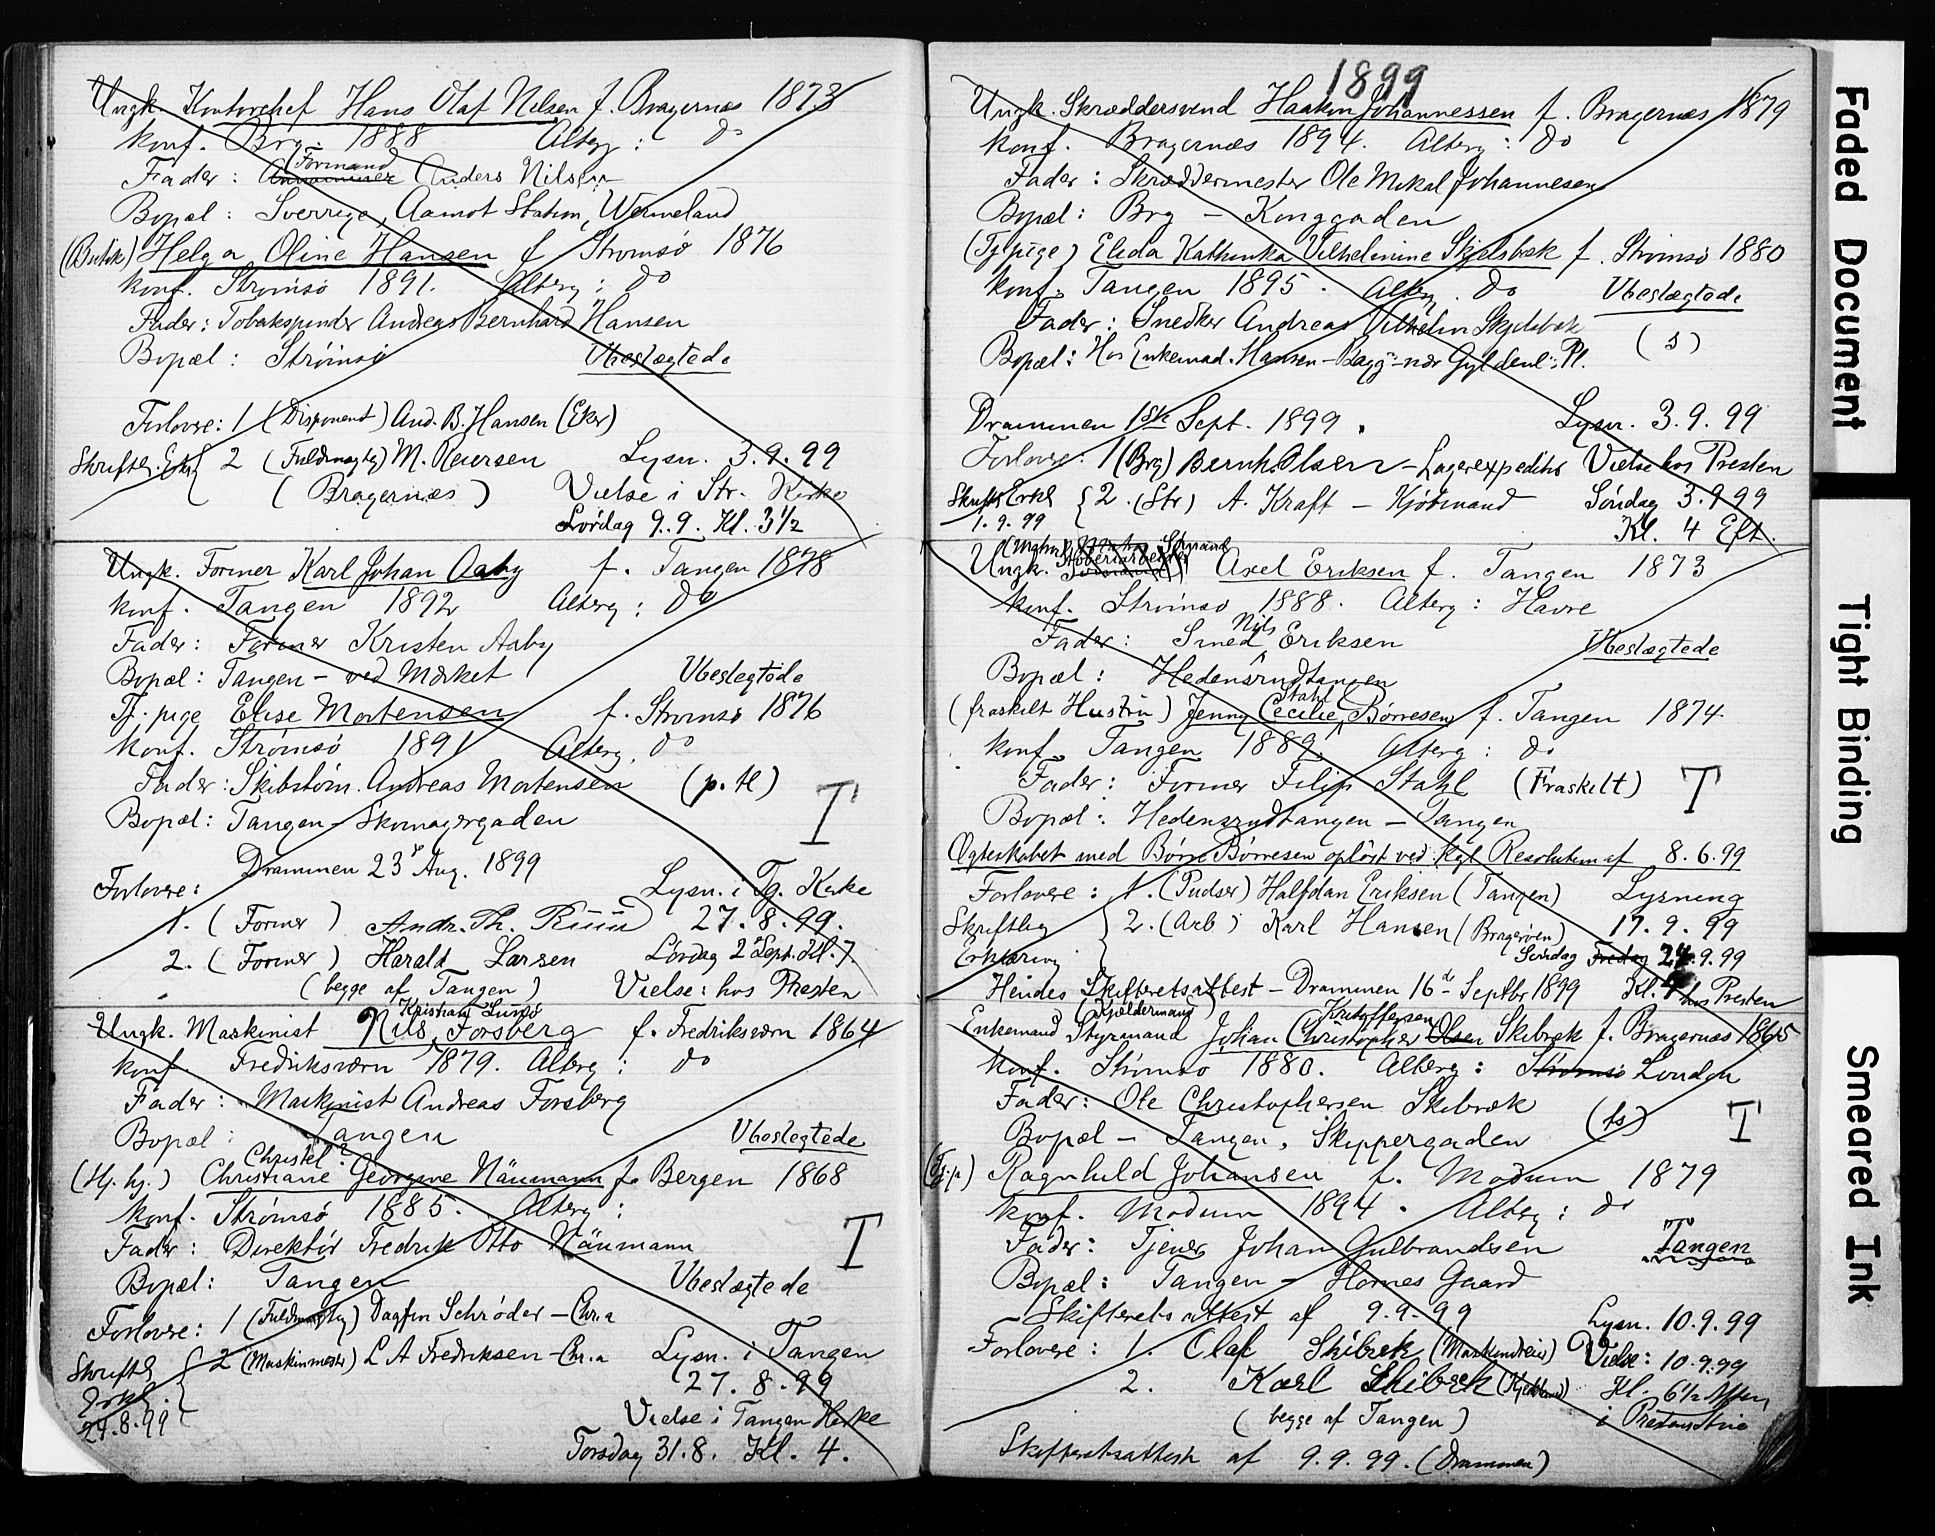 Ungk. Kontorchef Hans Olaf Nilsen f. Bragernæs 1873
konf. Brg 1888 Alberg: do
Formand
Fader: Anders Nilsen
Bopæl: Sverrige, Aamot Station, Wermeland
(Butik) Helga Oline Hansen f Strømsø 1876
konf. Strømsø 1891. Alberg: do
Fader: Tobakspinder Andreas Bernhard Hansen
Bopæl: Strømsø Ubeslægtede
Forlovere: 1 (Disponent) And. B. Hansen (Eker)
Skriftl. Erkl { 2 (Fuldmægtig) M. Reiersen Lysn. 3.9.99
(Bragernæs) Vielse i Str. Kirke
Lørdag 9.9. Kl. 3½
Ungk. Former Karl Johan Aaby f. Tangen 1878
konf. Tangen 1892 Alberg: do
Fader: Former Kristen Aaby
Bopæl: Tangen - ved Mærket Ubeslegtede
Tj. pige Elise Mortensen f. Strømsø 1876
konf. Strømsø 1891 Alberg. do
Fader: Skibstøm. Andreas Mortensen (p. tl) T
Bopæl: Tangen - Skomagergaden
Drammen 23 Aug. 1899
Forlovere: Lysn. i Tg. Kirke
1. (Former) Andr. Th. Ruud 27.8.99.
2. (Former) Harald Larsen Lørdag 2 Sept. Kl. 7.
(begge af Tangen) Vielse: hos Presten
Kristian Lumsø
Ungk. Maskinist Nils Forsberg f. Fredriksværn 1864
konf. Fredriksværn 1879. Alberg: do
Fader: Maskinist Andreas Forsberg
Bopæl: Tangen Ubeslegtede
Christel
(Hj. hj.) Christiane Georgine Näumann f. Bergen 1868
konf. Strømsø 1885. Alberg:
Fader: Direktør Fredrik Otto Näumann T
Bopæl: Tangen Ubeslægtede
Forlovere: 1 (Fuldmægtig) Dagfin Schrøder - Chr.a
Skriftl { 2 (Maskinmester) L A Fredriksen - Chr.a Lysn. i Tangen
Erkl. 27.8.99
29.8.99 Vielse i Tangen Kirke
Torsdag 31.8. Kl. 4.
1899
Ungk. Skræddersvend Haakon Johannessen f. Bragernæs 1879
konf. Bragernæs 1894. Alberg: do
Fader: Skræddermester Ole Mikal Johannesen
Bopæl: Brg - Konggaden
(Tj pige) Elida Kathinka Vilhelmine Skjelsbæk f. Strømsø 1880
konf. Tangen 1895. Alberg. do Ubeslægtede
Fader: Snedker Andreas Vilhelm Skjelsbæk
Bopæl: Hos Enkemad. Hansen - Bragg - nær Gyldenl. Pl. (s)
Drammen 1ste Sept. 1899. Lysn. 3.9.99
Forlovere. 1 (Brg) Bernh. Olsen - Lagerexpeditør Vielse hos Presten
Skriftl Erkl { 2. (Str) A. Kraft - Kjøbmand Søndag 3.9 99
1.9.99 Kl. 4 Eft.
Ungk. Axel Eriksen f. Tangen 1873
konf. Strømsø 1888. Alberg: Havre
Nils
Fader: Smed Eriksen Ubeslægtede
Bopæl: Hedensrudtangen
Stahl
(fraskilt Hustru) Jenny Cecilie Børresen f. Tangen 1874
konf. Tangen 1889. Alberg: do
Fader: Former Filip Stahl (Fraskilt) T
Bopæl: Hedensrudtangen - Tangen
Ægteskabet med Børre Børresen opløst ved Kgl Resolution af 8.6.99
Forlovere: 1. (Pudser) Halfdan Eriksen (Tangen) Lysning
Skriftlig } 2. (Arb) Karl Hansen (Bragerøen) 17.9.99
Erklæring Søndag Fredag 24.9.99
Hendes Skifteretsattest - Drammen 16de Septbr 1899 Kl. 4 hos Presten
(Kjøldermand) Kristoffersen
Enkemand Styrmand Johan Christopher Olsen Skibræk f. Bragernæs 1865
konf. Strømsø 1880. Alberg: Strømsø London
Fader: Ole Christophersen Skibræk (ts) T
Bopæl - Tangen, Skippergaden
(Tj. p) Ragnhild Johansen f. Modum 1879
konf. Modum 1894. Alberg: do
Fader: Tjener Johan Gulbrandsen Tangen
Bopæl: Tangen - Hornes Gaard
Skifteretsattest af 9.9.99 Lysn. 10.9.99
Forlovere: 1. Olaf Skibrek (Maskindreier) Vielse: 10.9.99
2. Karl Skibrek Kl. 6½ Aften
(begge af Tangen) i
Skifteretsattest af 9.9.99. (Drammen)
Faded Document
Tight Binding
Smeared Ink